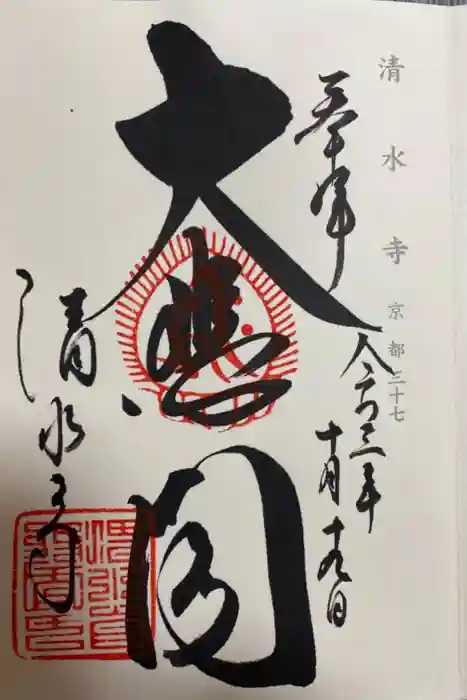 清水寺 京都三十七
奉拝
令和三年
十月十九日
大悲閣
清水寺